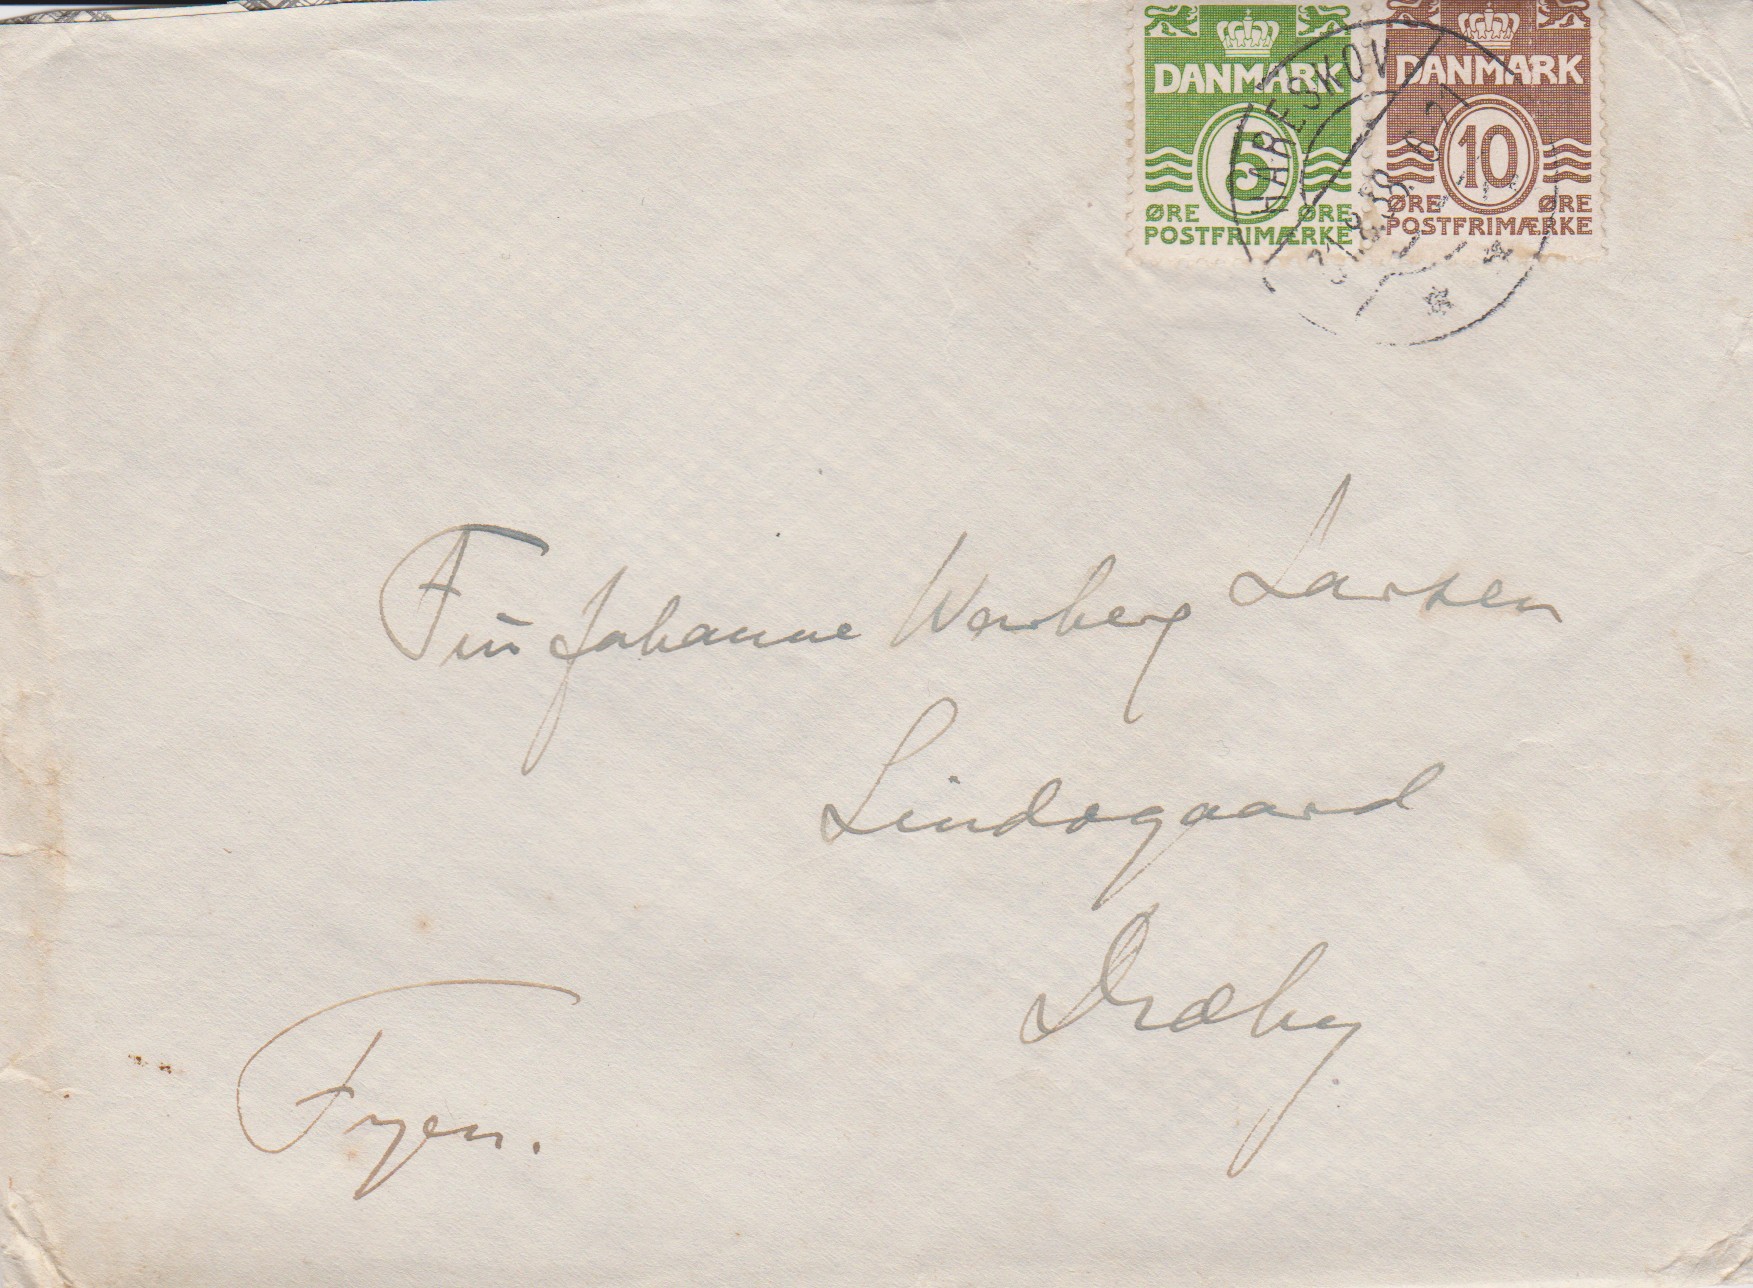 DANMARK
5
ØRE ØRE
POSTFRIMÆRKE
DANMARK
10
ØRE ØRE
POSTFRIMÆRKE
HARESKOV
31.8.38
Fru Johanne Warberg Larsen
Lindøgaard
Dræby.
Fyen.